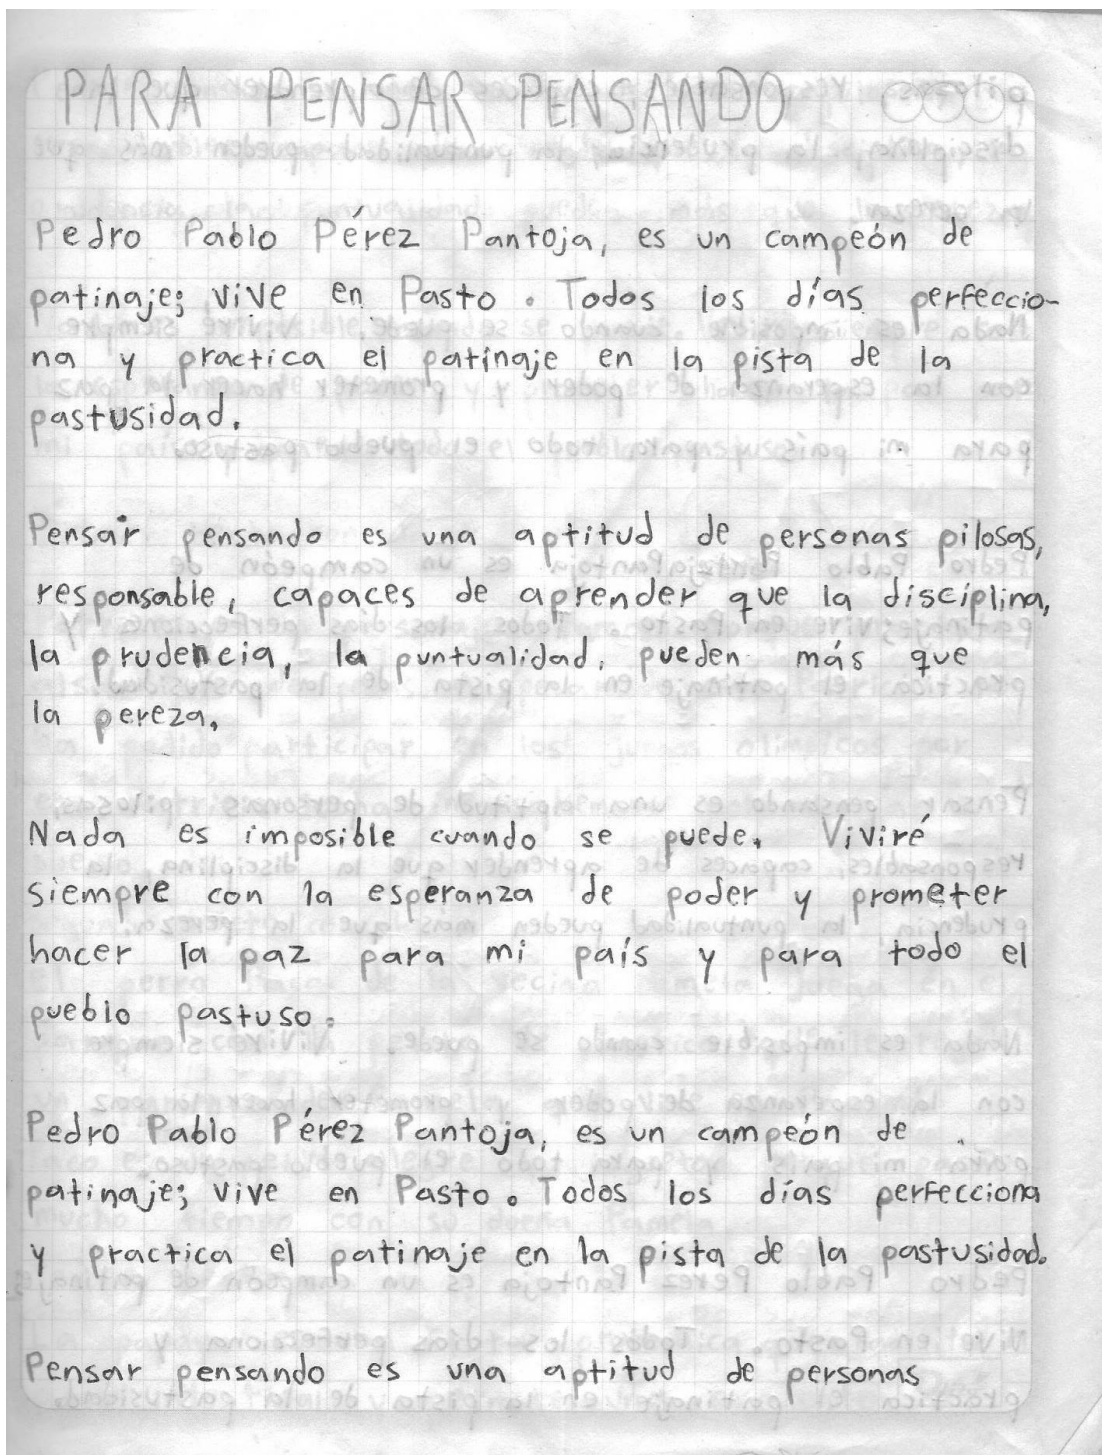 PARA PENSAR PENSANDO
Pedro Pablo Pérez Pantoja, es un campeón de
patinaje; vive en Pasto. Todos los días perfeccio-
na y practica el patinaje en la pista de la
pastusidad.
Pensar pensando es una aptitud de personas pilosas,
responsable, capaces de aprender que la disciplina,
la prudencia, la puntualidad, pueden más que
la pereza.
Nada es imposible cuando se puede. Viviré
siempre con la esperanza de poder y prometer
hacer la paz para mi país y para todo el
pueblo pastuso.
Pedro Pablo Pérez Pantoja, es un campeón de
patinaje; vive en Pasto. Todos los días perfecciona
y practica el patinaje en la pista de la pastusidad.
Pensar pensando es una aptitud de personas